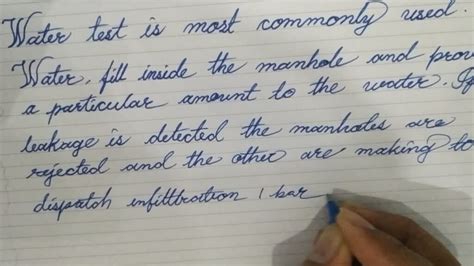 Water test is most commonly used.
Water, fill inside the manhole and prov
a particular amount to the water. If
leakage is detected the manholes are
rejected and the other are making to
dispatch infilltration 1 bar